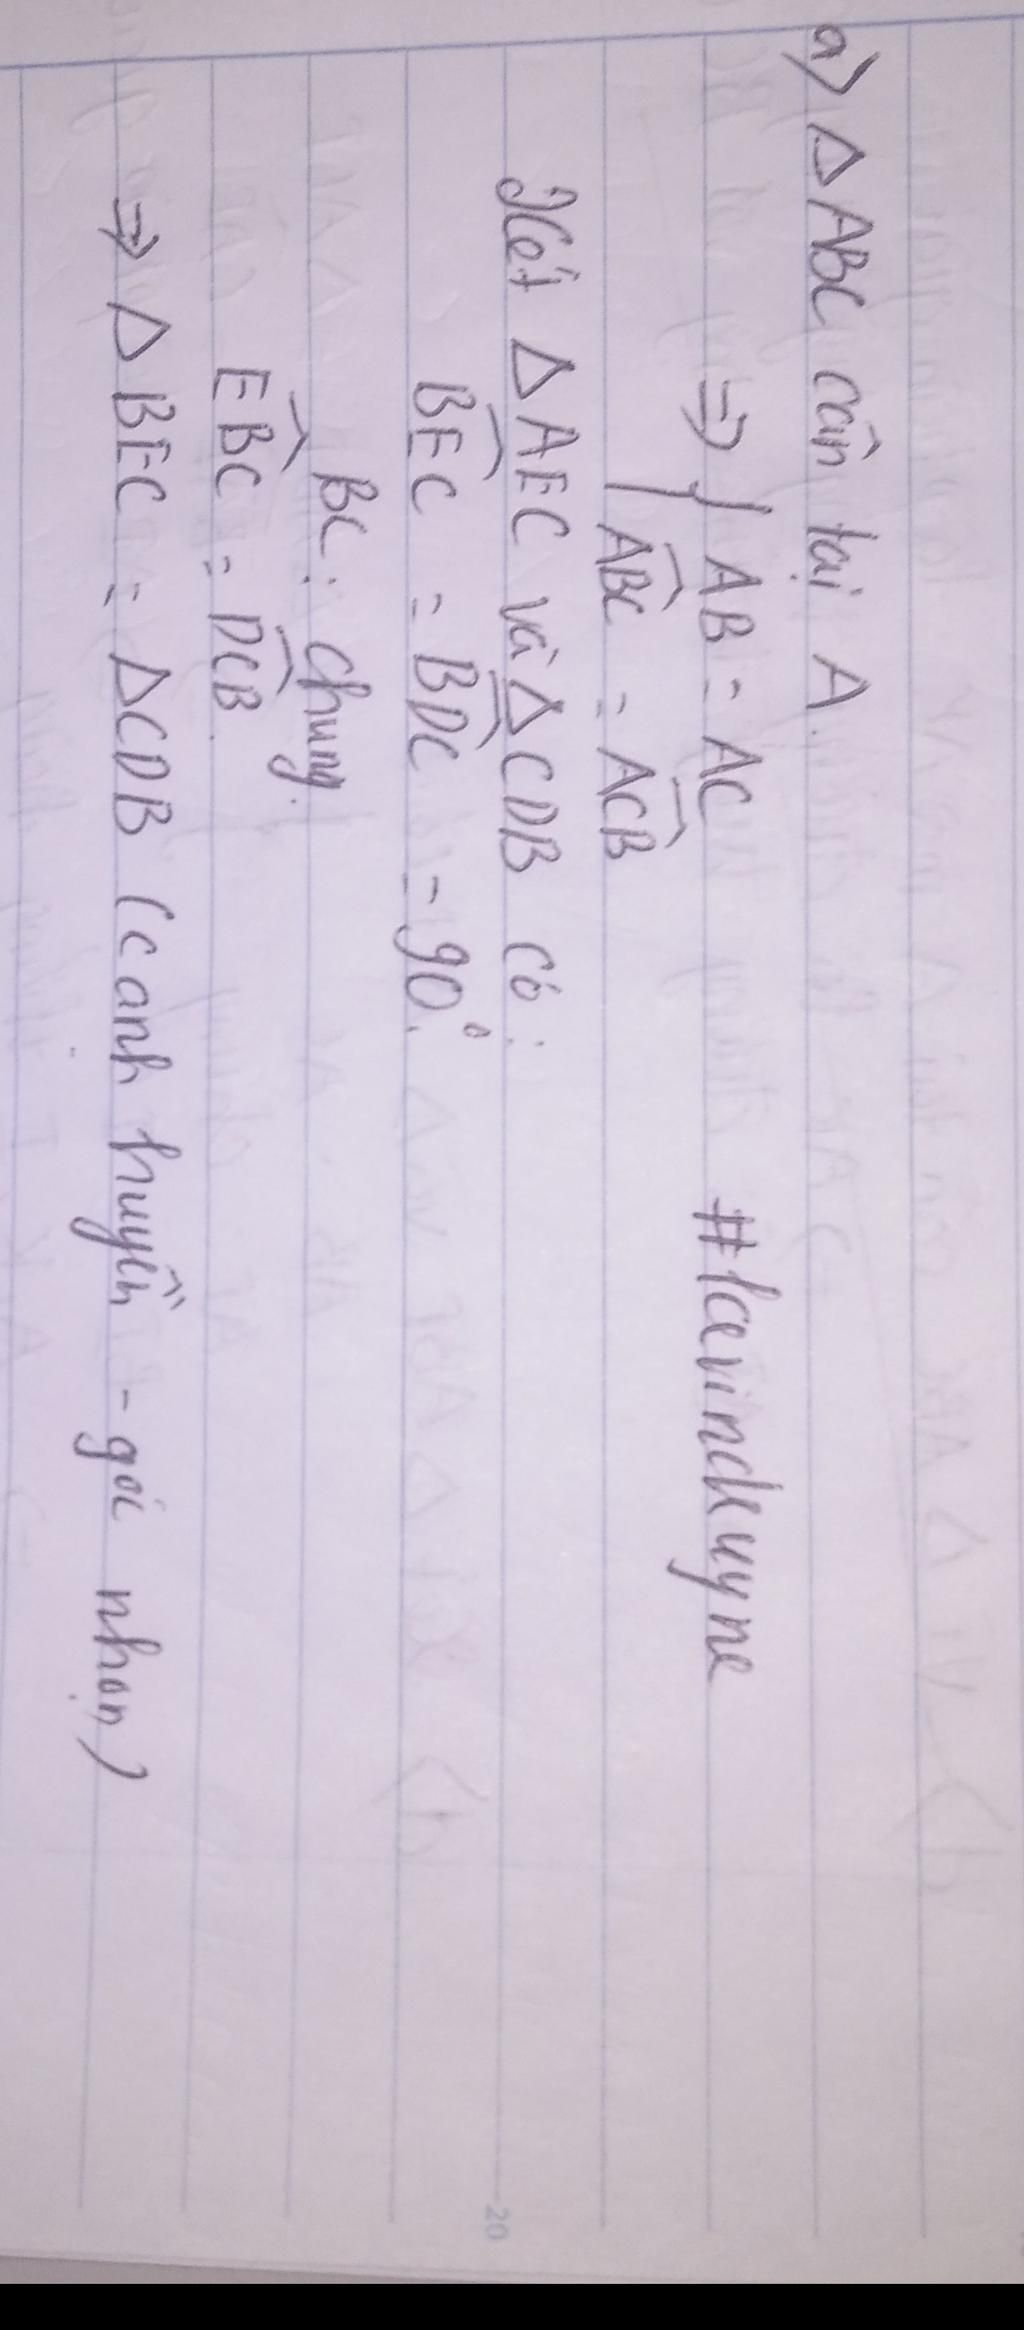 a) Δ ABC cân tại A.
⇒ { AB = AC
#kevindeuyne
{ \widehat{ABC} = \widehat{ACB}
Xét Δ AEC và Δ CDB có:
\widehat{BEC} = \widehat{BDC} = 90°.
BC: chung.
\widehat{EBC} = \widehat{DCB}.
⇒ Δ BEC = Δ CDB (cạnh huyền - góc nhọn)
20